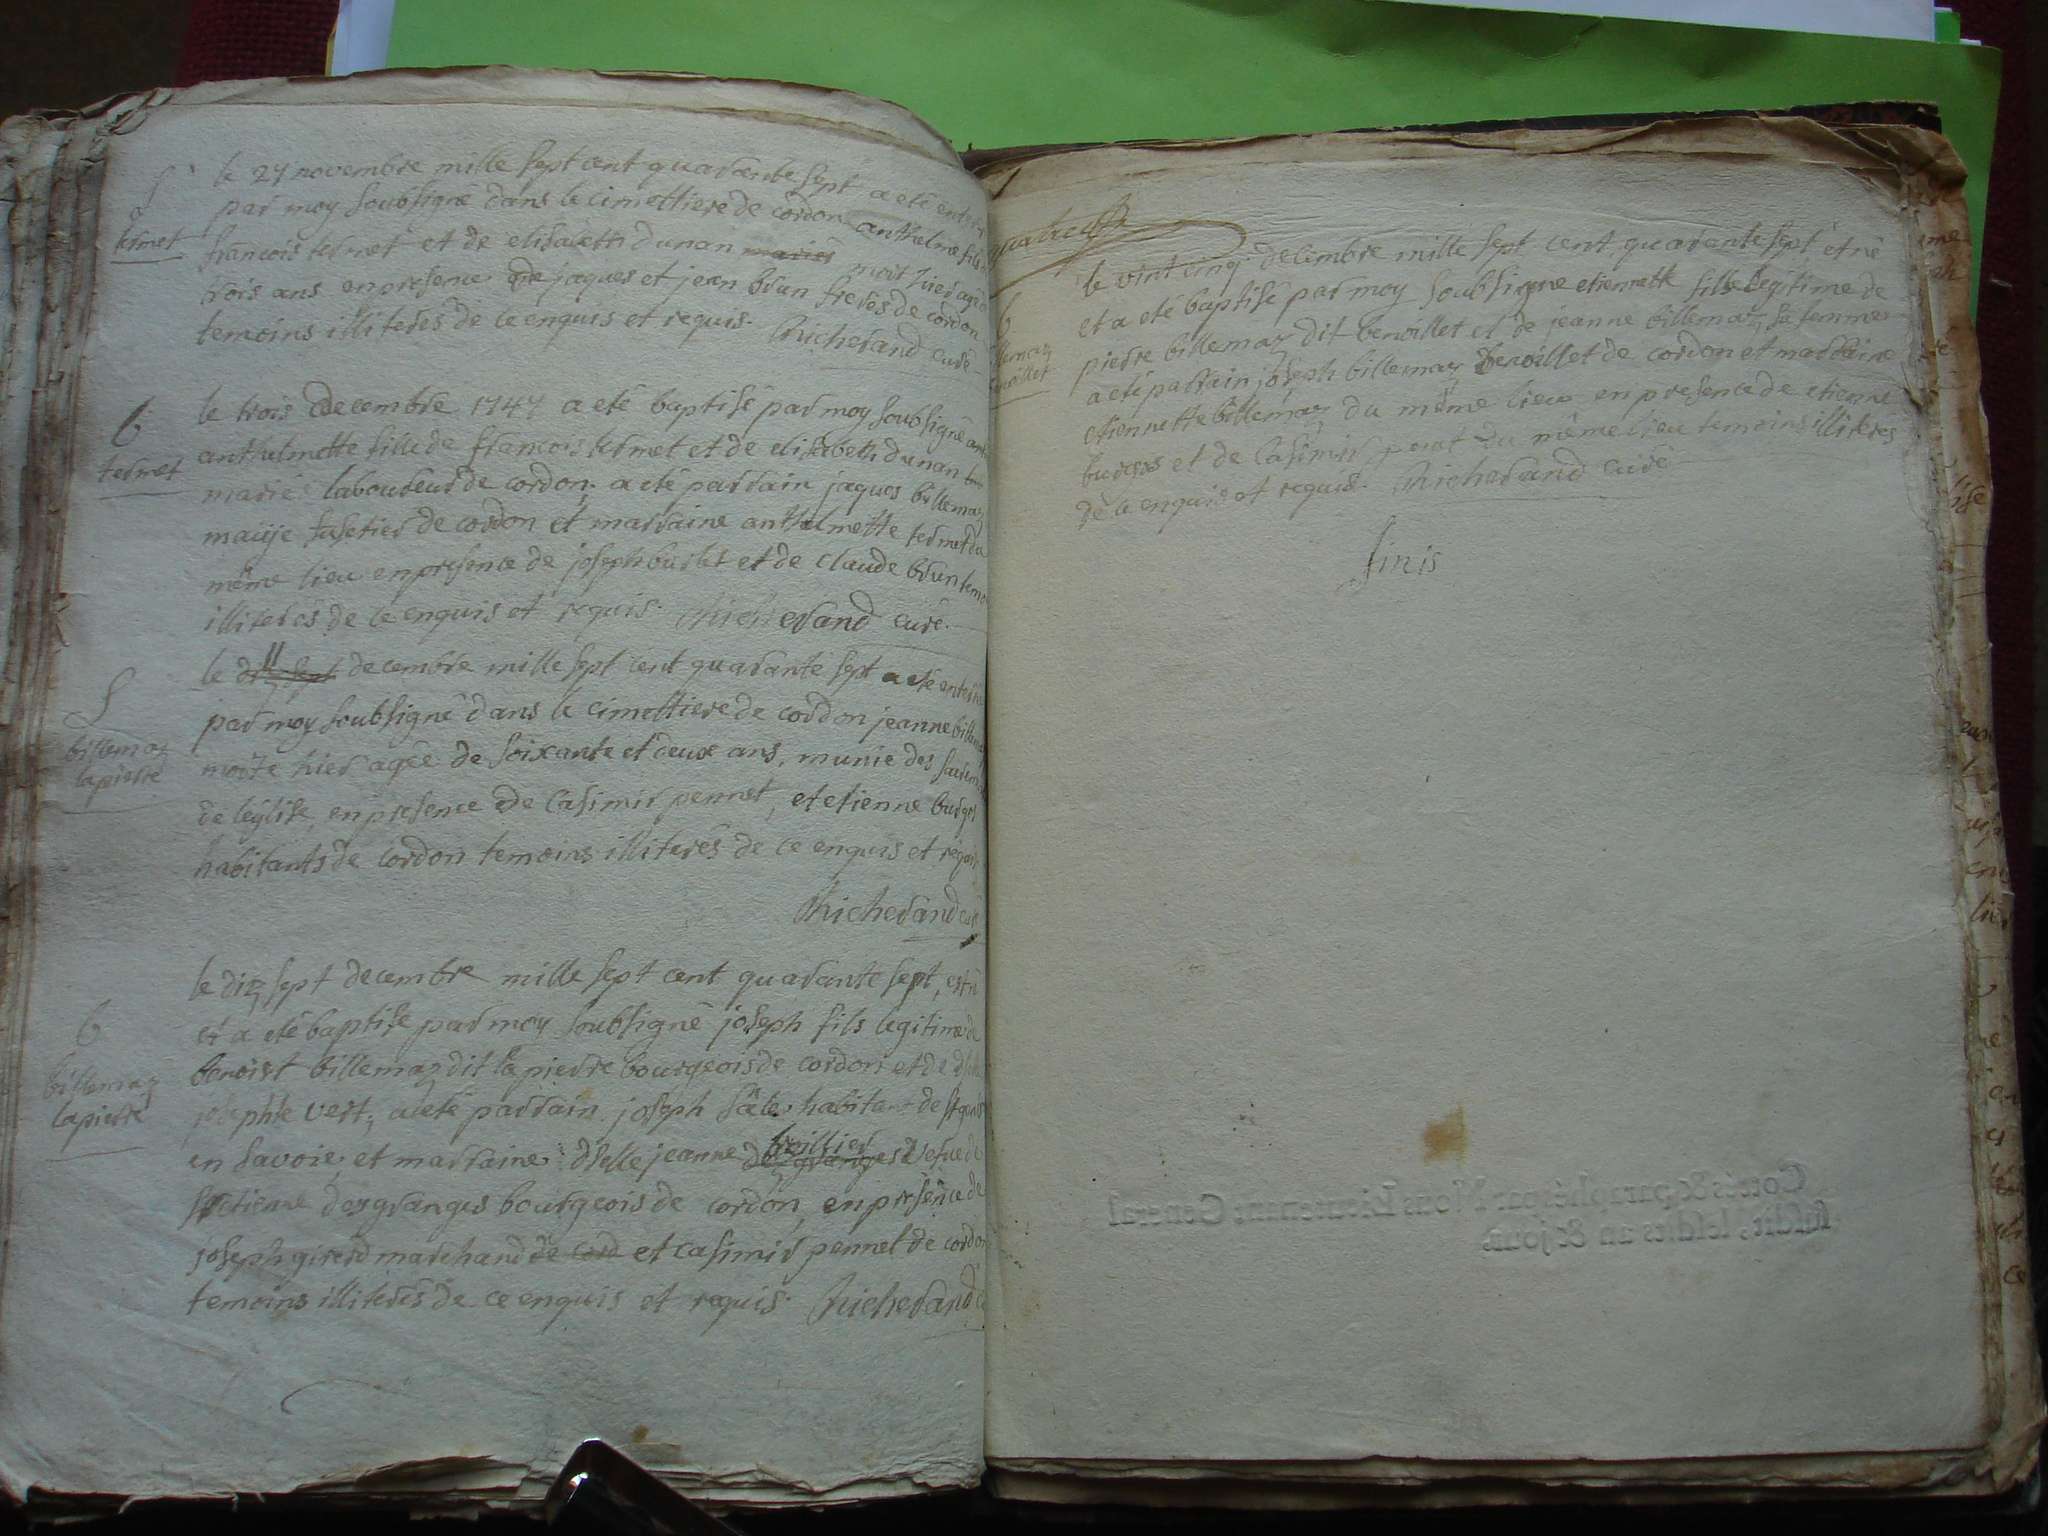 S
termet
le 27 novembre mille sept cent quarante sept a eté
par moy soubsigné dans le cimettiere de cordon anthelme fils
francois termet et de elisabeth dunan maries mort hier agé
trois ans en presence de jaques et jean brun freres de cordon
temoins illiterés de ce enquis et requis. Richerand curé
b
termet
le trois decembre 1747 a eté baptisé par moy soubsigné
anthelmette fille de francois termet et de elisabeth dunan
mariés laboureur de cordon. a eté parrain jaques billemaz
fusetier de cordon et marraine anthelmette termet du
même lieu en presence de joseph burlet et de claude brun
illiterés de ce enquis et requis. Richerand curé.
S
billemaz
lapierre
le dix sept 11 decembre mille sept cent quarante sept a eté enterré
par moy soubsigné dans le cimettiere de cordon jeanne
morte hier agée de soixante et deux ans, munie des
de léglise, en presence de Casimir pennet, et etienne
habitants de cordon temoins illiterés de ce enquis et requis
Richerand
b
billemaz
lapierre
le diz sept decembre mille sept cent quarante sept, est né
et a eté baptise par moy soubsigné joseph fils legitime de
benoist billemaz dit la pierre bourgeois de cordon et de
josephte vert, a eté parrain joseph habitant de
en savoie, et marraine dlle jeanne desgranges vefue de
etienne desgranges bourgeois de cordon, en presence de
joseph girerd marchand de cord et casimir pennet de cordon
temoins illiterés de ce enquis et requis. Richerand
b
le vint cinq decembre mille sept cent quarante sept est né
et a eté baptisé par moy soubsigné etiennette fille legitime de
pierre billemaz dit benoillet et de jeanne billemaz sa femme
a eté parrain joseph billemaz benoillet de cordon et marraine
etiennette billemaz du même lieu en presence de etienne
et de Casimir du même lieu temoins illiterés
de ce enquis et requis. Richerand curé
finis
Cottés & paraphés par Nous Lieutenant General
susdit, lesdits an & jour.